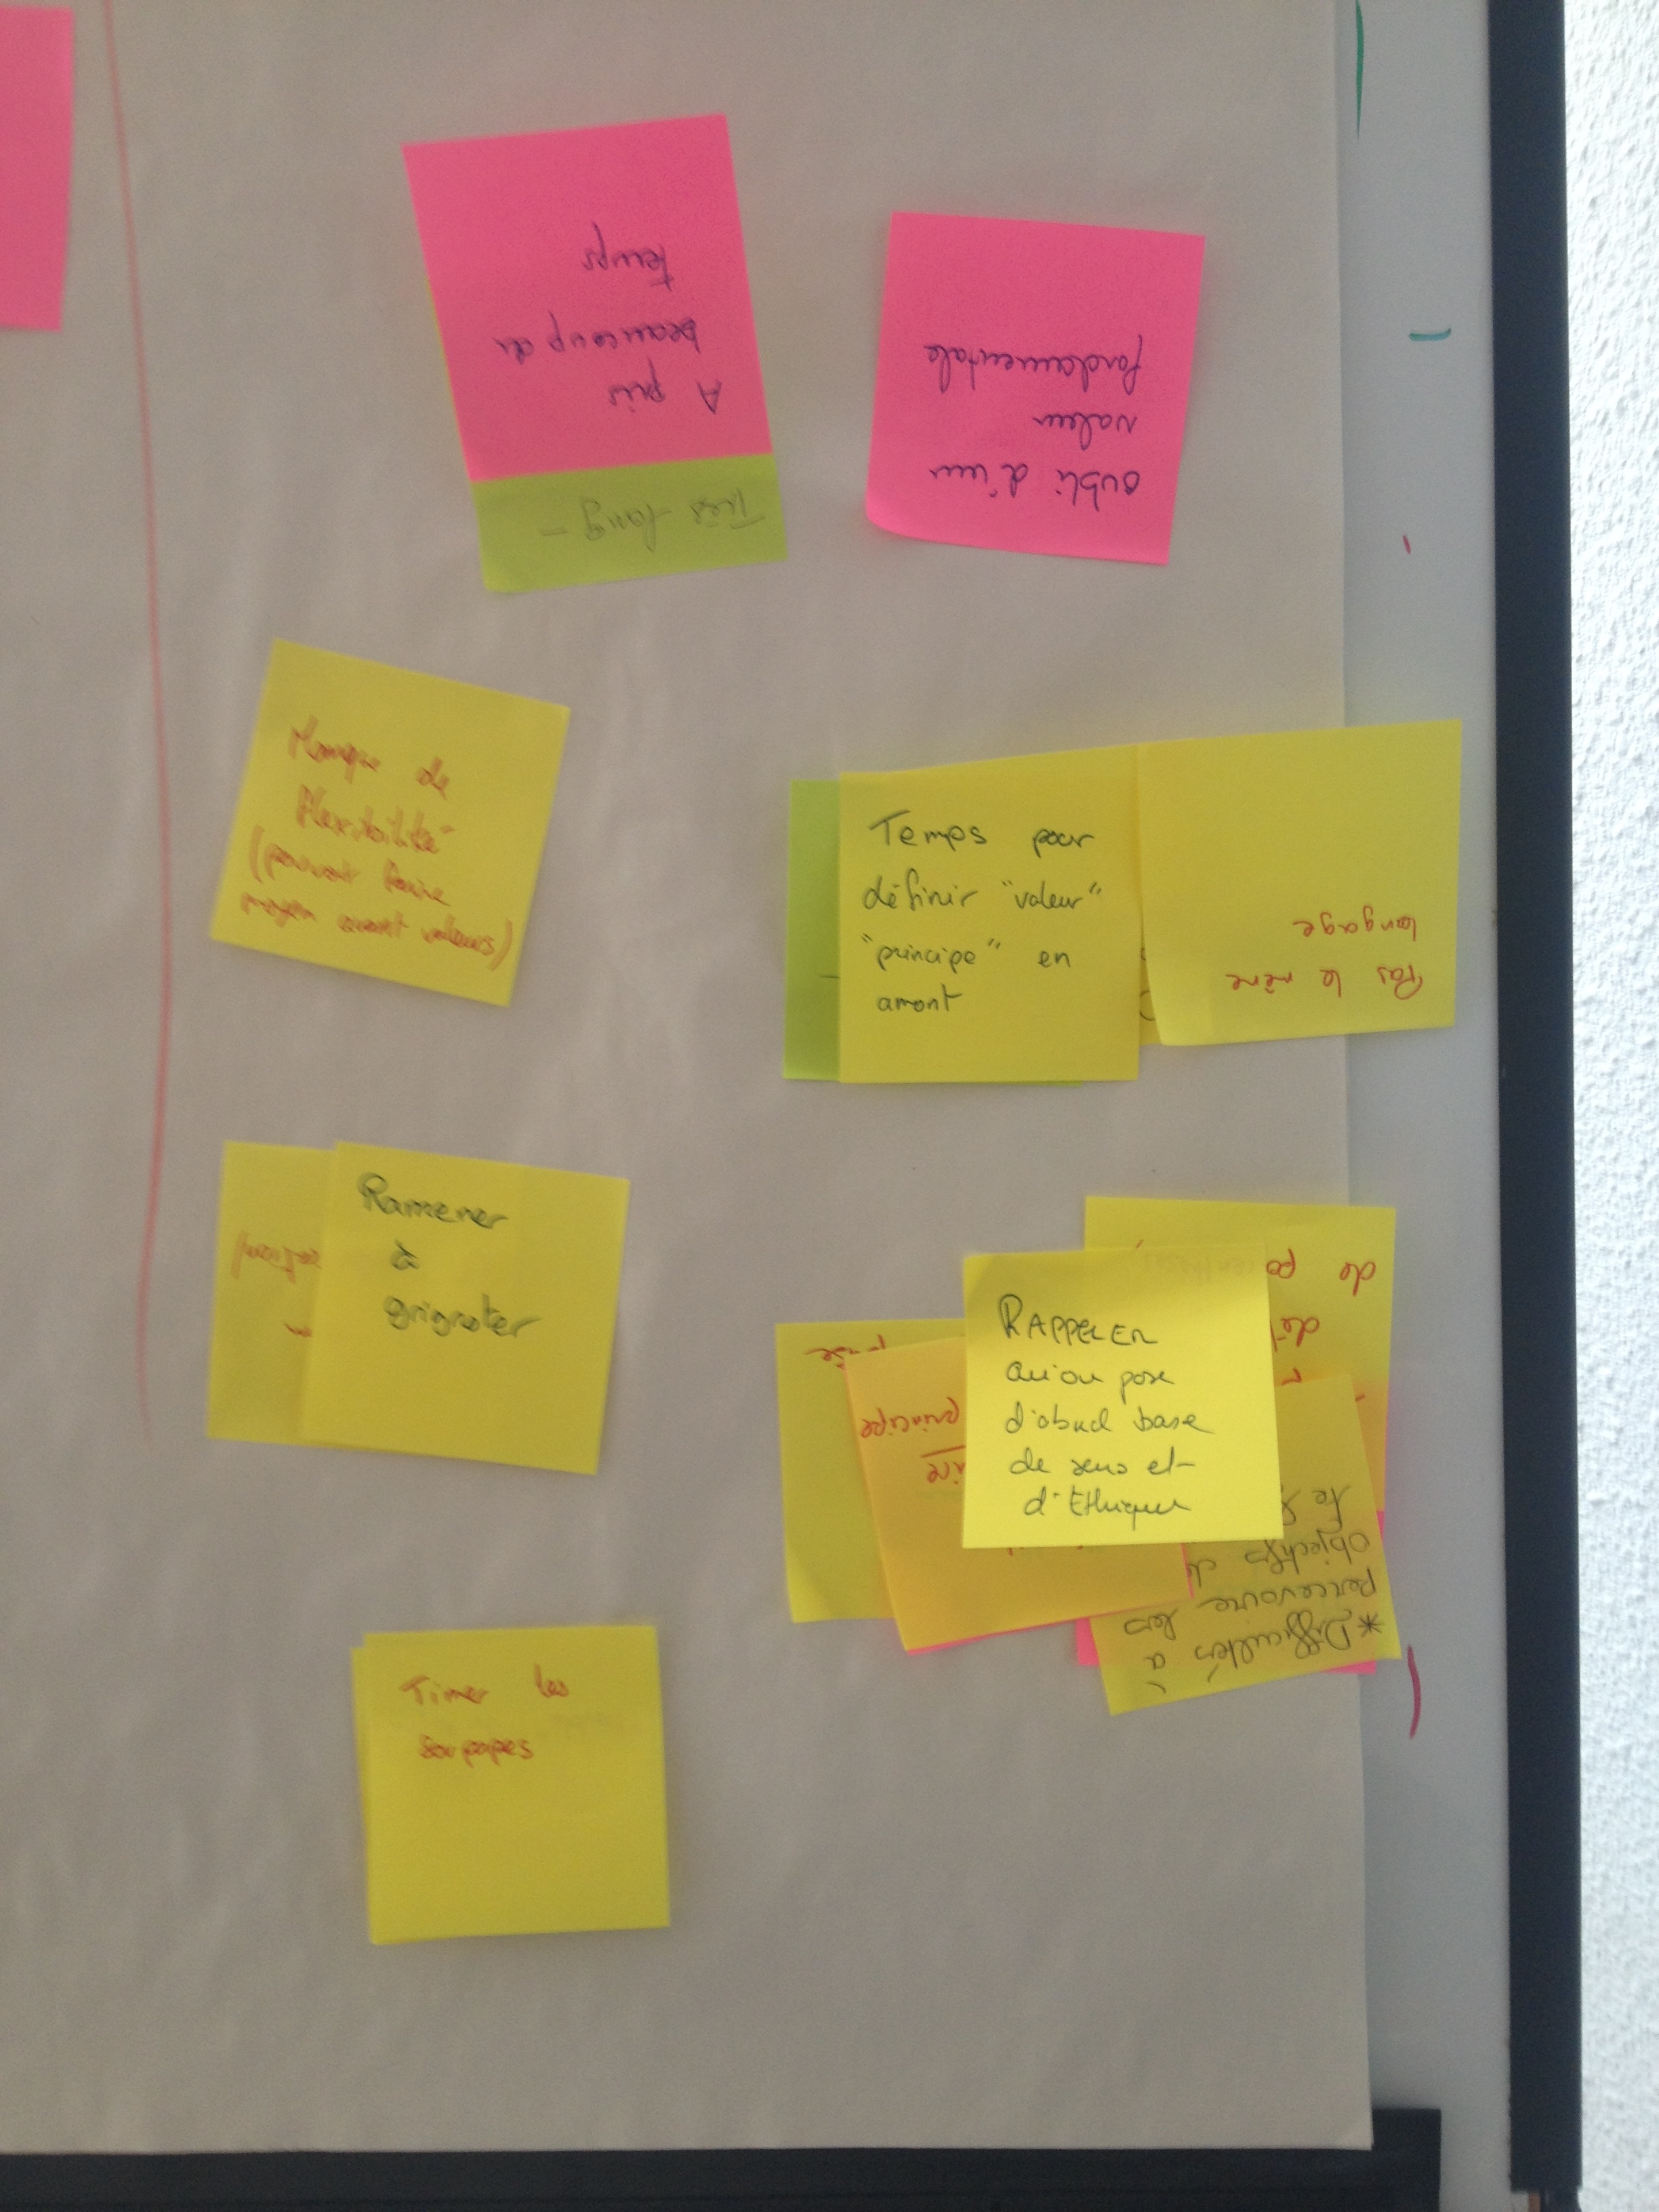 A pris
beaucoup de
temps
Très long -
oubli d'une
valeur
fondamentale
Manque de
flexibilité
(pouvoir faire
moyen avant valeurs)
Temps pour
définir "valeur"
"principe" en
amont
Pas le même
langage
Ramener
à
grignoter
RAPPELER
qu'on pose
d'abord base
de sens et
d'Ethique
principe
de
*Difficultés à
percevoire les
objectifs de
Timer les
soupapes